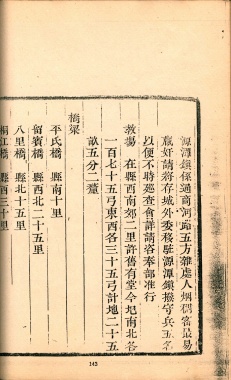 源潭鎮係通商河路五方雜處人烟稠密最易
藏奸請將存城外委移駐源潭鎮撥守兵五名
以便不時廵查會詳請咨奉部准行
教塲 在縣西南郊二里許舊有堂今圯南北各
一百七十五弓東西各三十五弓計地二十五
畝五分二釐
橋梁
平氏橋 縣南十里
留賓橋 縣西北二十五里
八里橋 縣北十五里
桐江橋 縣西三十里
142